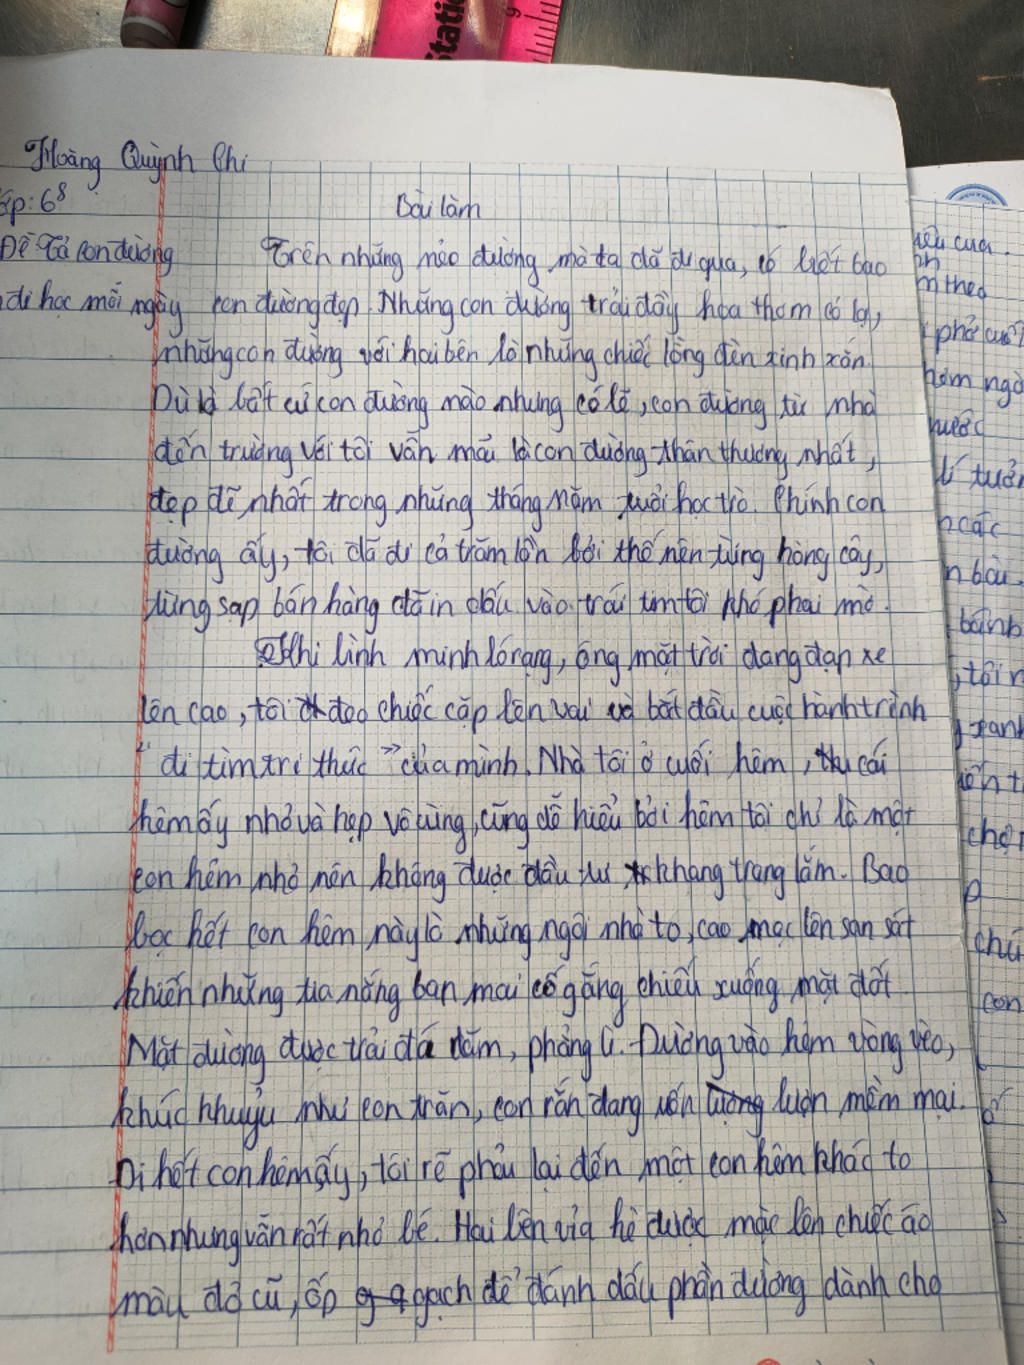 Hoàng Quỳnh Chi
ớp: 6⁸
Bài làm
Đề Tả con đường
đi học mỗi ngày
Trên những nẻo đường mà ta đã đi qua, có biết bao
con đường đẹp. Những con đường trải đầy hoa thơm cỏ lạ,
những con đường với hai bên là những chiếc lồng đèn xinh xắn.
Dù là bất cứ con đường nào nhưng có lẽ, con đường từ nhà
đến trường với tôi vẫn mãi là con đường thân thương nhất,
đẹp đẽ nhất trong những tháng năm tuổi học trò. Chính con
đường ấy, tôi đã đi cả trăm lần bởi thế nên từng hàng cây,
từng sạp bán hàng đã in dấu vào trái tim tôi khó phai mờ.
Khi bình minh ló rạng, ông mặt trời đang đạp xe
lên cao, tôi đeo chiếc cặp lên vai và bắt đầu cuộc hành trình
" đi tìm tri thức " của mình. Nhà tôi ở cuối hẻm, cái
hẻm ấy nhỏ và hẹp vô cùng, cũng dễ hiểu bởi hẻm tôi chỉ là một
con hẻm nhỏ nên không được đầu tư khang trang lắm. Bao
bọc hết con hẻm này là những ngôi nhà to, cao mọc lên san sát
khiến những tia nắng ban mai cố gắng chiếu xuống mặt đất
Mặt đường được trải đá dăm, phẳng lì. Đường vào hẻm vòng vèo,
khúc khuỷu như con trăn, con rắn đang uốn lượn mềm mại.
Đi hết con hẻm ấy, tôi rẽ phải lại đến một con hẻm khác to
hơn nhưng vẫn rất nhỏ bé. Hai bên vỉa hè được mặc lên chiếc áo
màu đỏ cũ, ốp gạch để đánh dấu phần đường dành cho